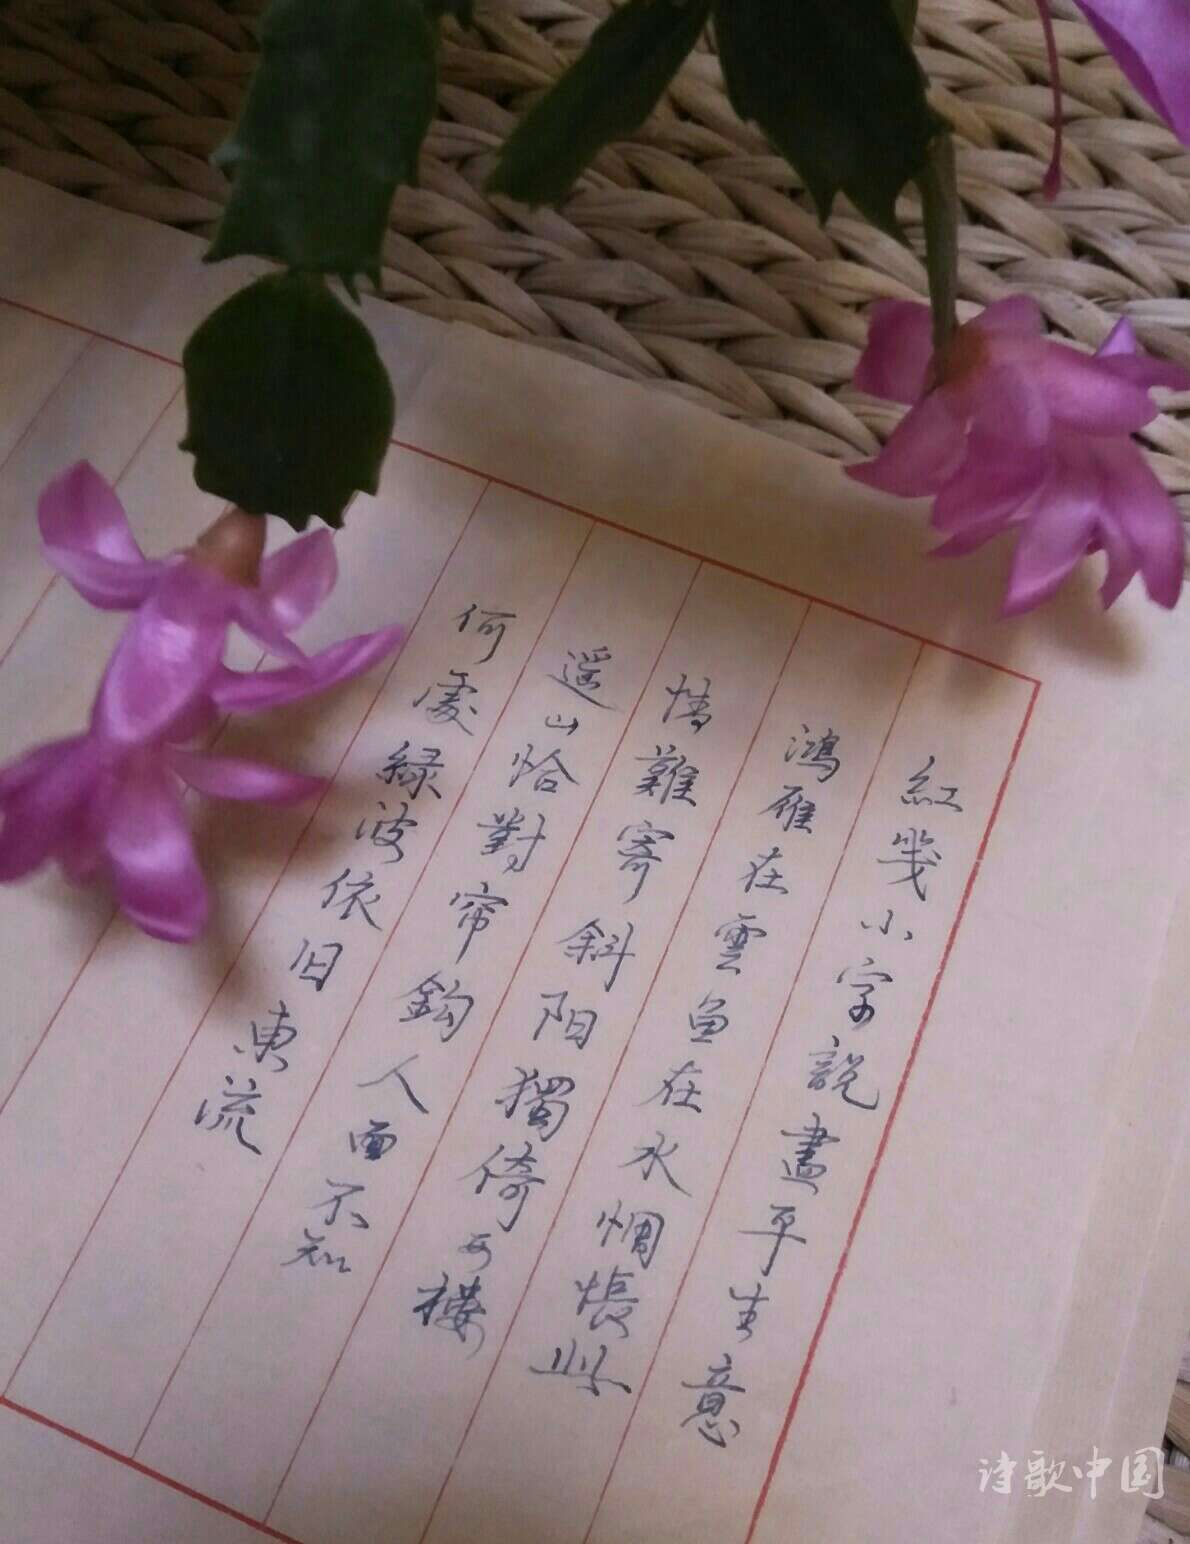 紅箋小字說盡平生意
鴻雁在雲魚在水惆悵此
情難寄斜阳獨倚西樓
遥山恰對帘鈎人面不知
何處緑波依旧東流
诗歌中国